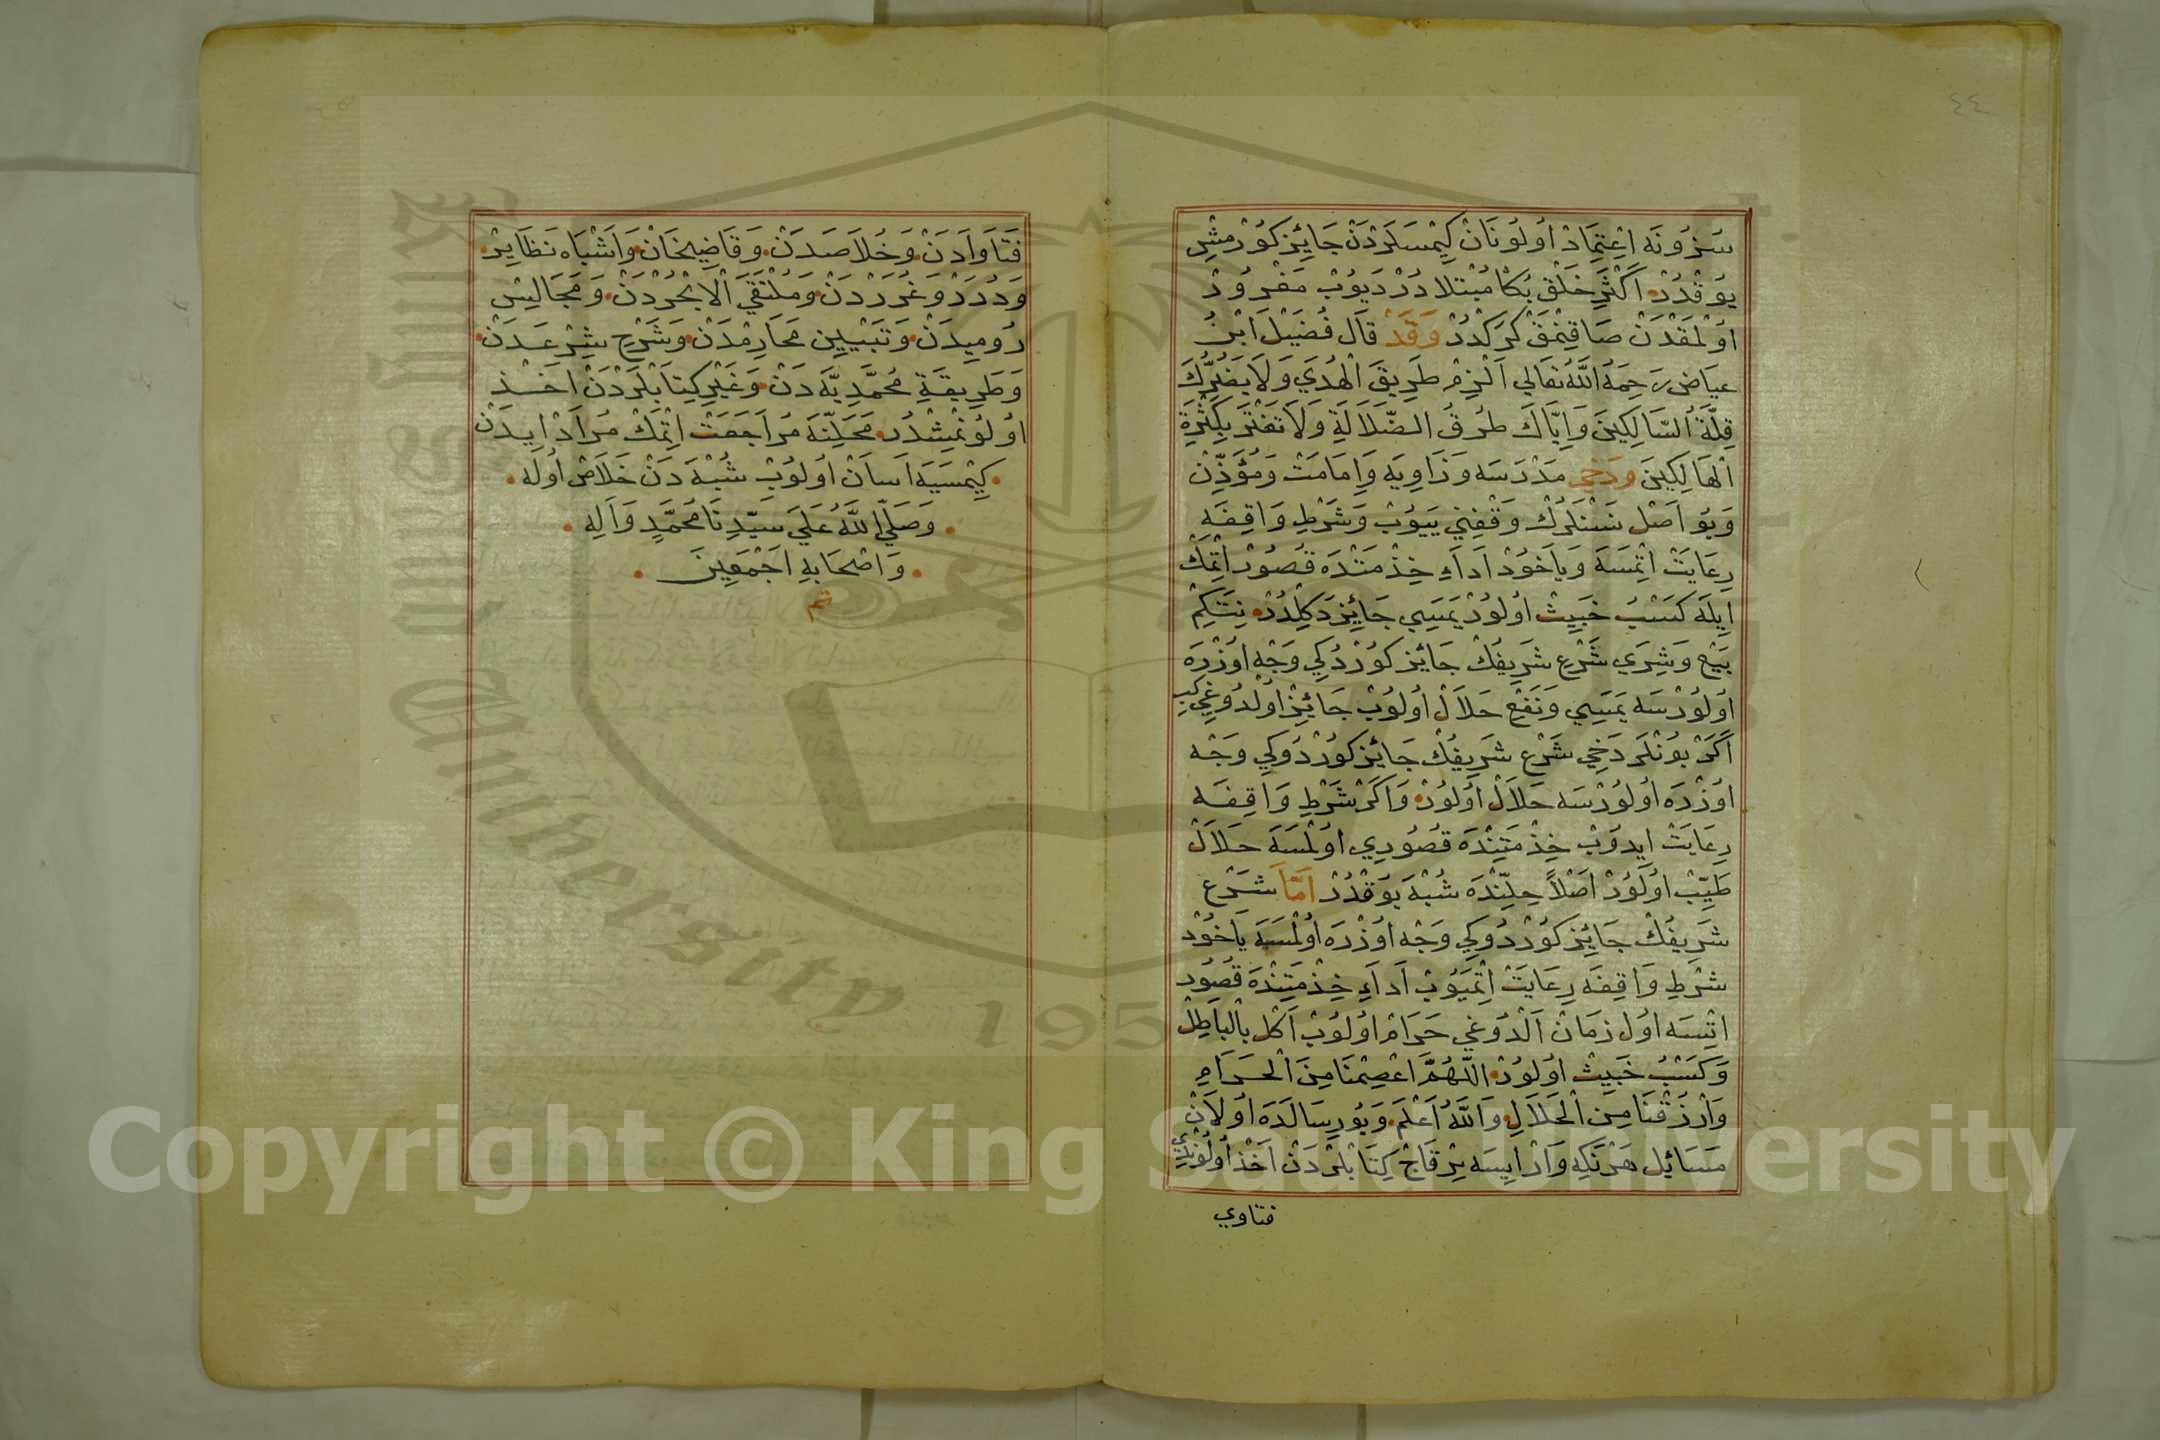 ٤٤
سَوزُونَه اِعْتِمَادْ اُولُونَانْ كِيْمْسَلَرْدَنْ جَائِزْ كُورْمِشْ
يُوقْدُرْ اَكْثَرِ خَلْقْ بُكَا مُبْتَلَا دُرْ دَيُوبْ مَغْرُورْ
اُولْمَقْدَنْ صَاقِنْمَقْ كَرَكْدُرْ وَقَدْ قَالَ فُضَيْلُ ابْنُ
عِيَاضْ رَحِمَهُ اللّٰهُ تَعَالَي اَلْزِمْ طَرِيقَ الْهُدَي وَلَا يَضُرُّكَ
قِلَّةُ السَّالِكِينَ وَاِيَّاكَ طُرُقَ الضَّلَالَةِ وَلَا تَغْتَرَّ بِكَثْرَةِ
الْهَالِكِينَ وَدَخِي مَدْرَسَه وَزَاوِيَه وَاِمَامَتْ وَمُؤَذِّنْ
وَبُو اَصْل نَسْنَلَرُكْ وَقْفِنِي يَيُوبْ وَشَرْطِ وَاقِفَه
رِعَايَتْ اِتْمَسَه وَيَاخُوذْ اَدَاءِ خِذْمَتْدَه قُصُورْ اِتْمَكْ
اِيلَه كَسْبُ خَبِيثْ اُولُورْ يَمَسِي جَائِزْ دَكِلْدُرْ نِتَكِمْ
بَيْع وَشِرَي شَرْعِ شَرِيفُكْ جَائِزْ كُورْدُكِي وَجْه اُوزْرَه
اُولُورْسَه يَمَسِي وَنَفْعِ حَلَالْ اُولُوبْ جَائِزْ اُولْدُوغِي كِبِي
اَكَرْ بُونْلَرْ دَخِي شَرْع شَرِيفُكْ جَائِزْ كُورْدُوكِي وَجْه
اُوزْرَه اُولُورْسَه حَلَالْ اُولُورْ وَاَكَرْ شَرْطِ وَاقِفَه
رِعَايَتْ اِيدُوبْ خِذْمَتِنْدَه قُصُورِي اُولْمَسَه حَلَالْ
طَيِّبْ اُولُورْ اَصْلًا حِلِّنْدَه شُبْهَه يُوقْدُرْ اَمَّا شَرْع
شَرِيفُكْ جَائِزْ كُورْدُوكِي وَجْه اُوزْرَه اُولْمَسَه يَاخُوذْ
شَرْطِ وَاقِفَه رِعَايَتْ اِتْمَيُوبْ اَدَاءِ خِذْمَتِنْدَه قُصُورْ
اِتْسَه اُولْ زَمَانْ اَلْدُوغِي حَرَامْ اُولُوبْ اَكْل بِالْبَاطِلْ
وَكَسْبُ خَبِيثْ اُولُورْ اَللّٰهُمَّ اعْصِمْنَا مِنَ الْحَرَامِ
وَارْزُقْنَا مِنَ الْحَلَالِ وَاللّٰهُ اَعْلَمُ وَبُو رِسَالَدَه اُولَانْ
مَسَائِل هَرْ نَكِه وَارْاِيسَه بِرْقَاچْ كِتَابْلَرْدَنْ اَخْذ اُولُونْدِي
فتاوي
فَتَاوَادَنْ وَخُلَاصَدَنْ وَقَاضِيخَانْ وَاَشْبَاه نَظَايِرْ
وَدُرَرْ وَغُرَرْدَنْ وَمُلْتَقَي الْاَبْحُرْدَنْ وَمَجَالِسْ
رُومِيدَنْ وَتَبْيِينِ مَحَارِمْدَنْ وَشَرْحِ شِرْعَدَنْ
وَطَرِيقَةِ مُحَمَّدِيَّه دَنْ وَغَيْرِ كِتَابْلَرْدَنْ اَخْذ
اُولُونْمِشْدُرْ مَحَلِّنَه مُرَاجَعَتْ اِتْمَكْ مُرَادْ اِيدَنْ
كِيْمْسَيَه اَسَانْ اُولُوبْ شُبْهَ دَنْ خَلَاصْ اُولَه
وَصَلَّي اللّٰهُ عَلَي سَيِّدِنَا مُحَمَّدٍ وَاَلِهِ
وَاَصْحَابِهِ اَجْمَعِينَ
تم
University
195
Copyright © King Saud University